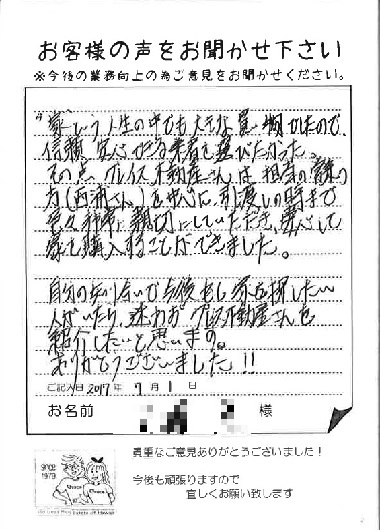 お客様の声をお聞かせ下さい
※今後の業務向上の為ご意見をお聞かせください。
"家"という人生の中でも大きな買い物だったので、
信頼、安心できる業者を選びたかった。
その点、グレイス不動産さんは担当の
方(西浦さん)を中心に、引渡しの時まで
色々非常に親切にしていただき、安心して
家を購入することができました。
自分の知り合いで今後もし家を探したい
人がいたら、迷わずグレイス不動産さんを
紹介したいと思います。
ありがとうございました!!
ご記入日2017年 9月 1日
お名前 様
貴重なご意見ありがとうございました!
今後も頑張りますので
宜しくお願い致します
SINCE
1979